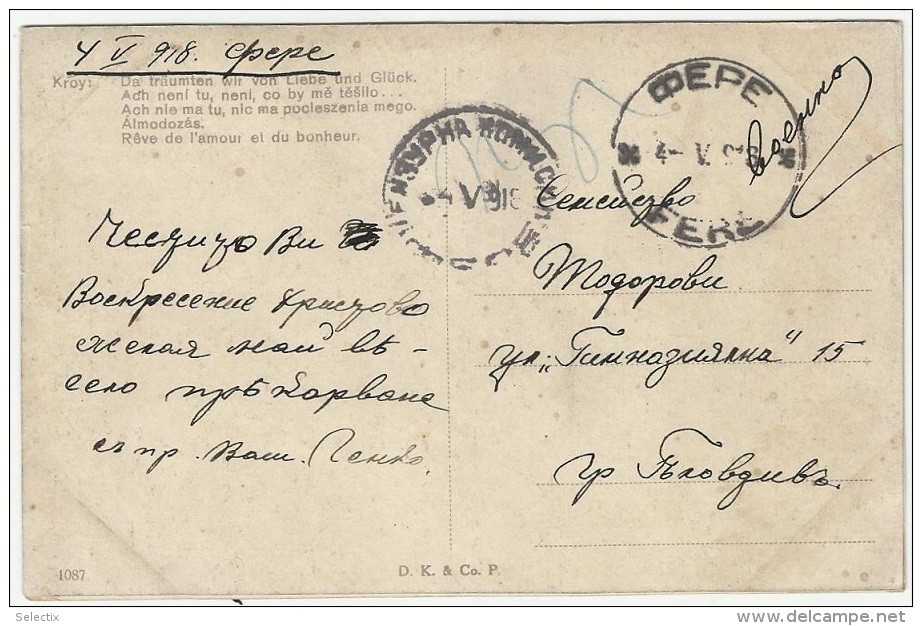 4 V 918. Фере
Kroy: Da träumten wir von Liebe und Glück.
Ach není tu, není, co by mě těšilo...
Ach nie ma tu, nic ma pocieszenia mego.
Álmodozás.
Rêve de l'amour et du bonheur.
ЦЕНЗУРНА КОМИСИЯ
4 V 918
ФЕРЕ
4 - V. 918
FERE
Военна
Честито Ви
Воскресение Христово
желая най вѣ-
село прѣкарване
съ пр. Ваш. Генко.
Семейство
Тодорови
ул. „Гимназиялна" 15
гр Пловдивъ.
1087
D. K. & Co. P.
Selectix
delcampe.net